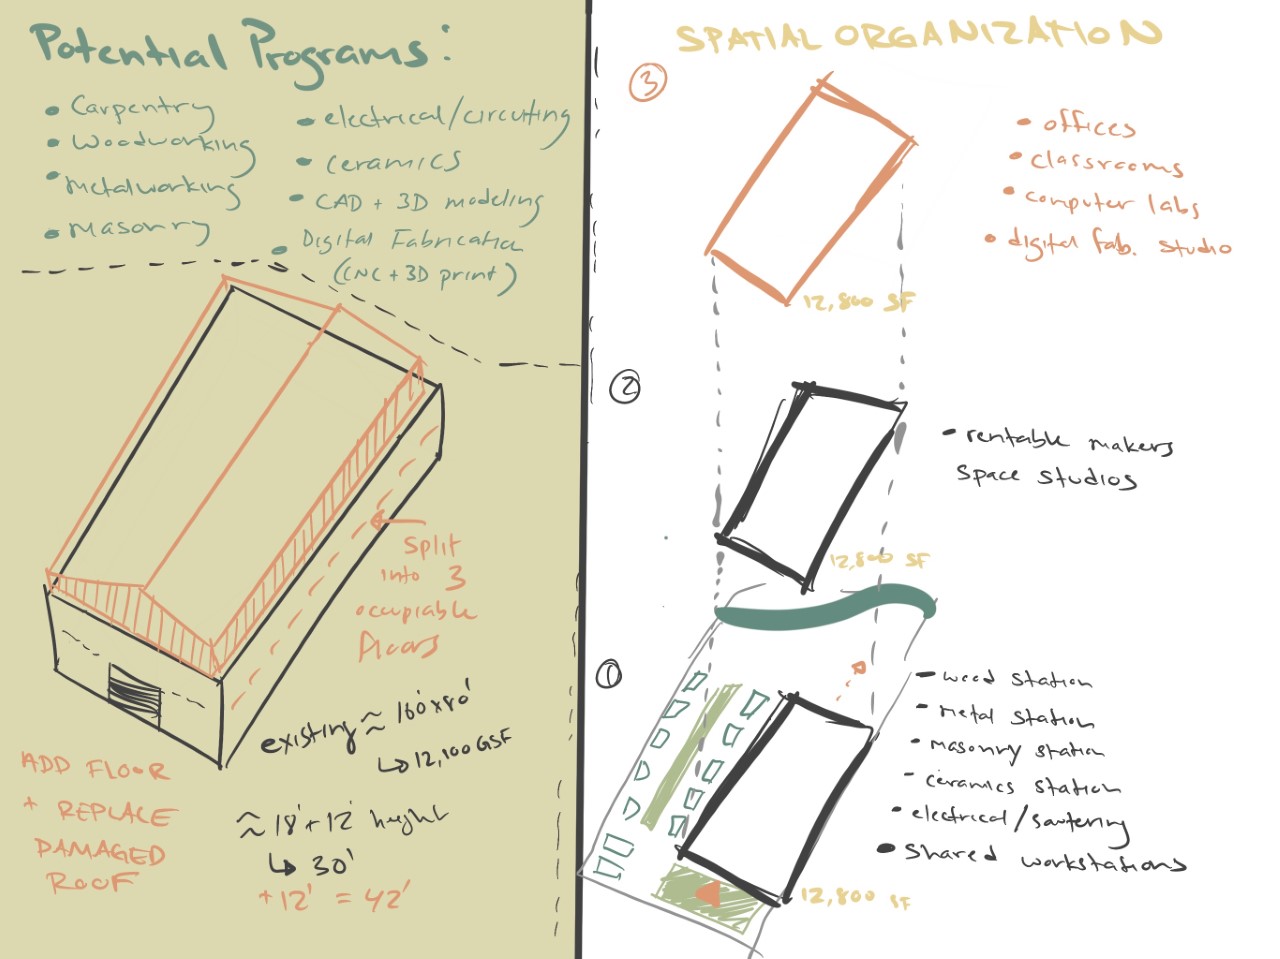 Potential Programs:
• Carpentry
• Woodworking
• Metalworking
• Masonry
• electrical/circuting
• ceramics
• CAD + 3D modeling
• Digital Fabrication
(CNC + 3D print)
split
into 3
occupiable
floors
existing ≈ 160'x80'
↳ 12,100 GSF
ADD FLOOR
+ REPLACE
DAMAGED
ROOF
≈ 18' + 12' height
↳ 30'
+12' = 42'
SPATIAL ORGANIZATION
3
• offices
• classrooms
• computer labs
• digital fab. studio
12,800 SF
2
• rentable makers
space studios
12,800 SF
1
- wood station
- metal station
• masonry station
- ceramics station
• electrical/sautering
• shared workstations
12,800 SF